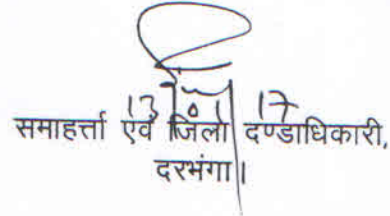 13/01/17
समाहर्त्ता एवं जिला दण्डाधिकारी,
दरभंगा।